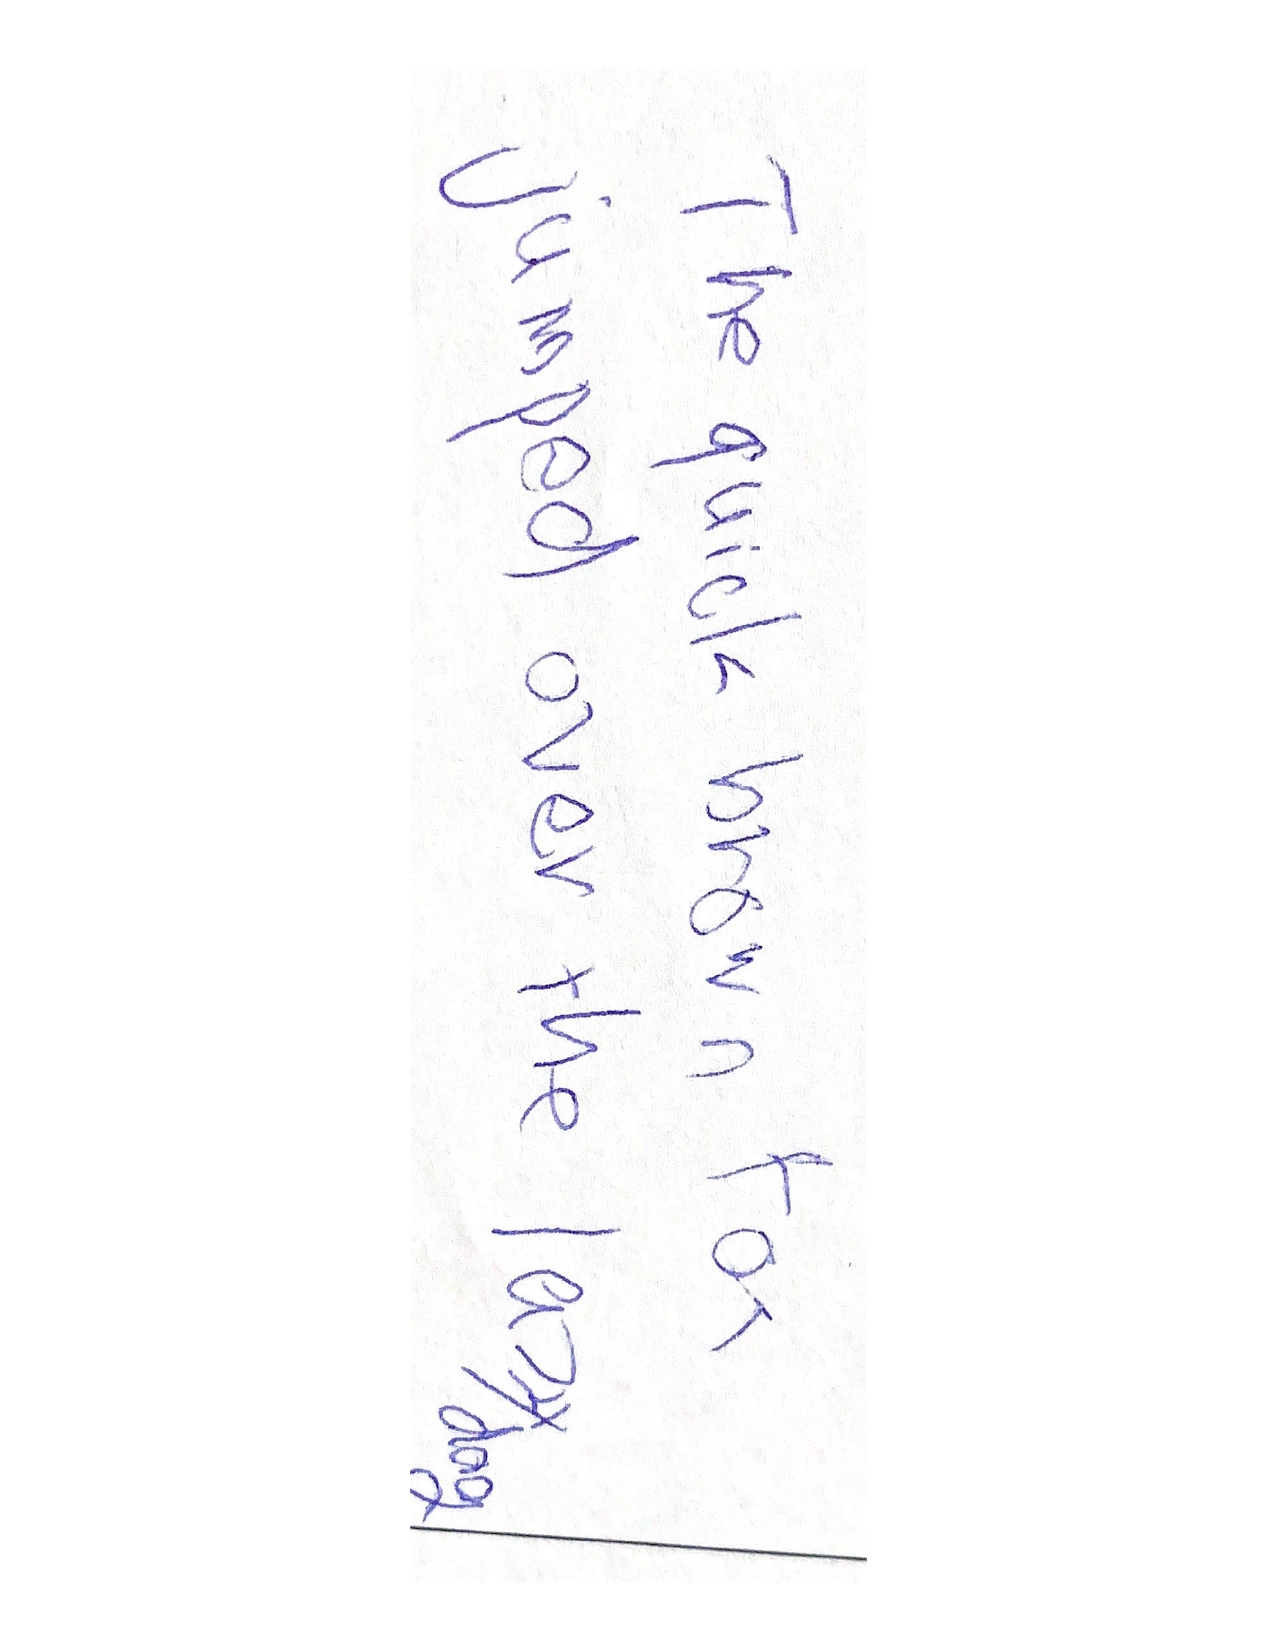 The quick brown for
jumped over the lazy
dog